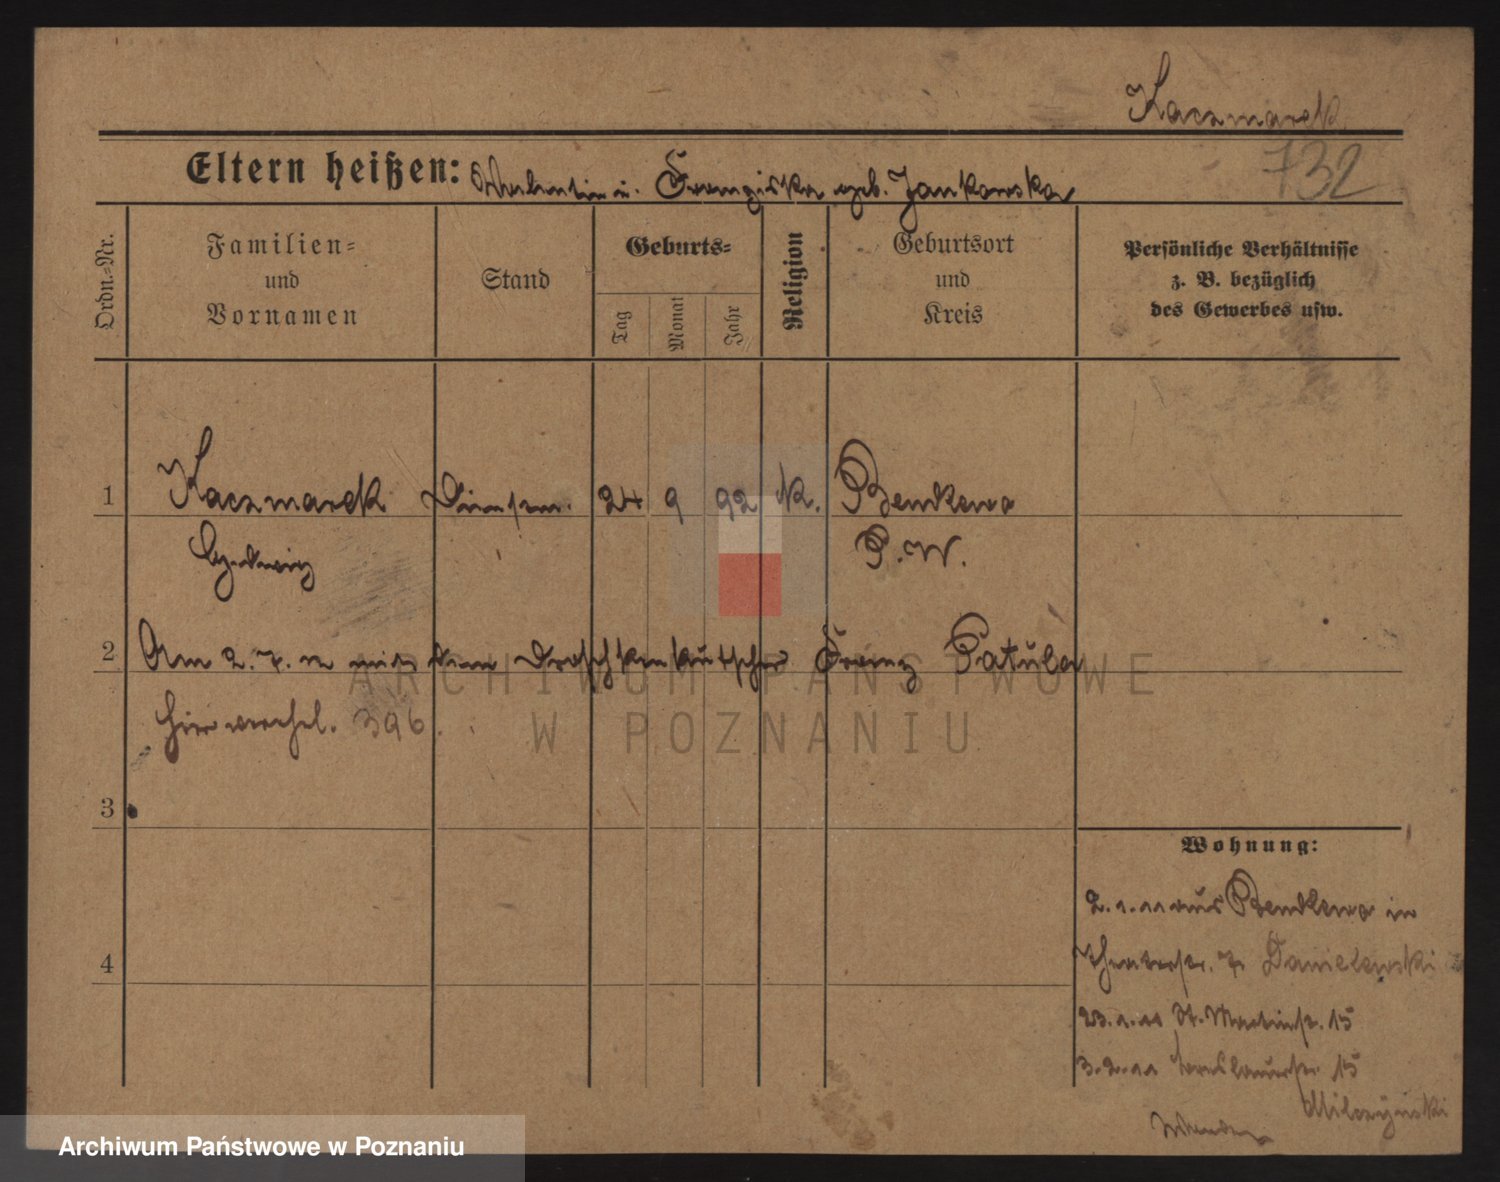 Kaczmarek
732
Eltern heißen: Valentin u. Franziska geb. Jankowska
Ordn.-Nr.
Familien-
und
Vornamen
Stand
Geburts-
Tag
Monat
Jahr
Religion
Geburtsort
und
Kreis
Persönliche Verhältnisse
z. B. bezüglich
des Gewerbes usw.
1 Kaczmarek 24 9 92 K. Bendlewo
Hedwig P. W.
2 Am 2. 7. mit dem Droschkenkutscher Franz Patula
hier verehel. 396.
3
4
Wohnung:
2. 1. 11 aus Bendlewo in
Theaterstr. 7 Danielewski
23. 1. 11 St. Martinstr. 15
3. 2. 11 15
Milczyński
ARCHIWUM PAŃSTWOWE
W POZNANIU
Archiwum Państwowe w Poznaniu